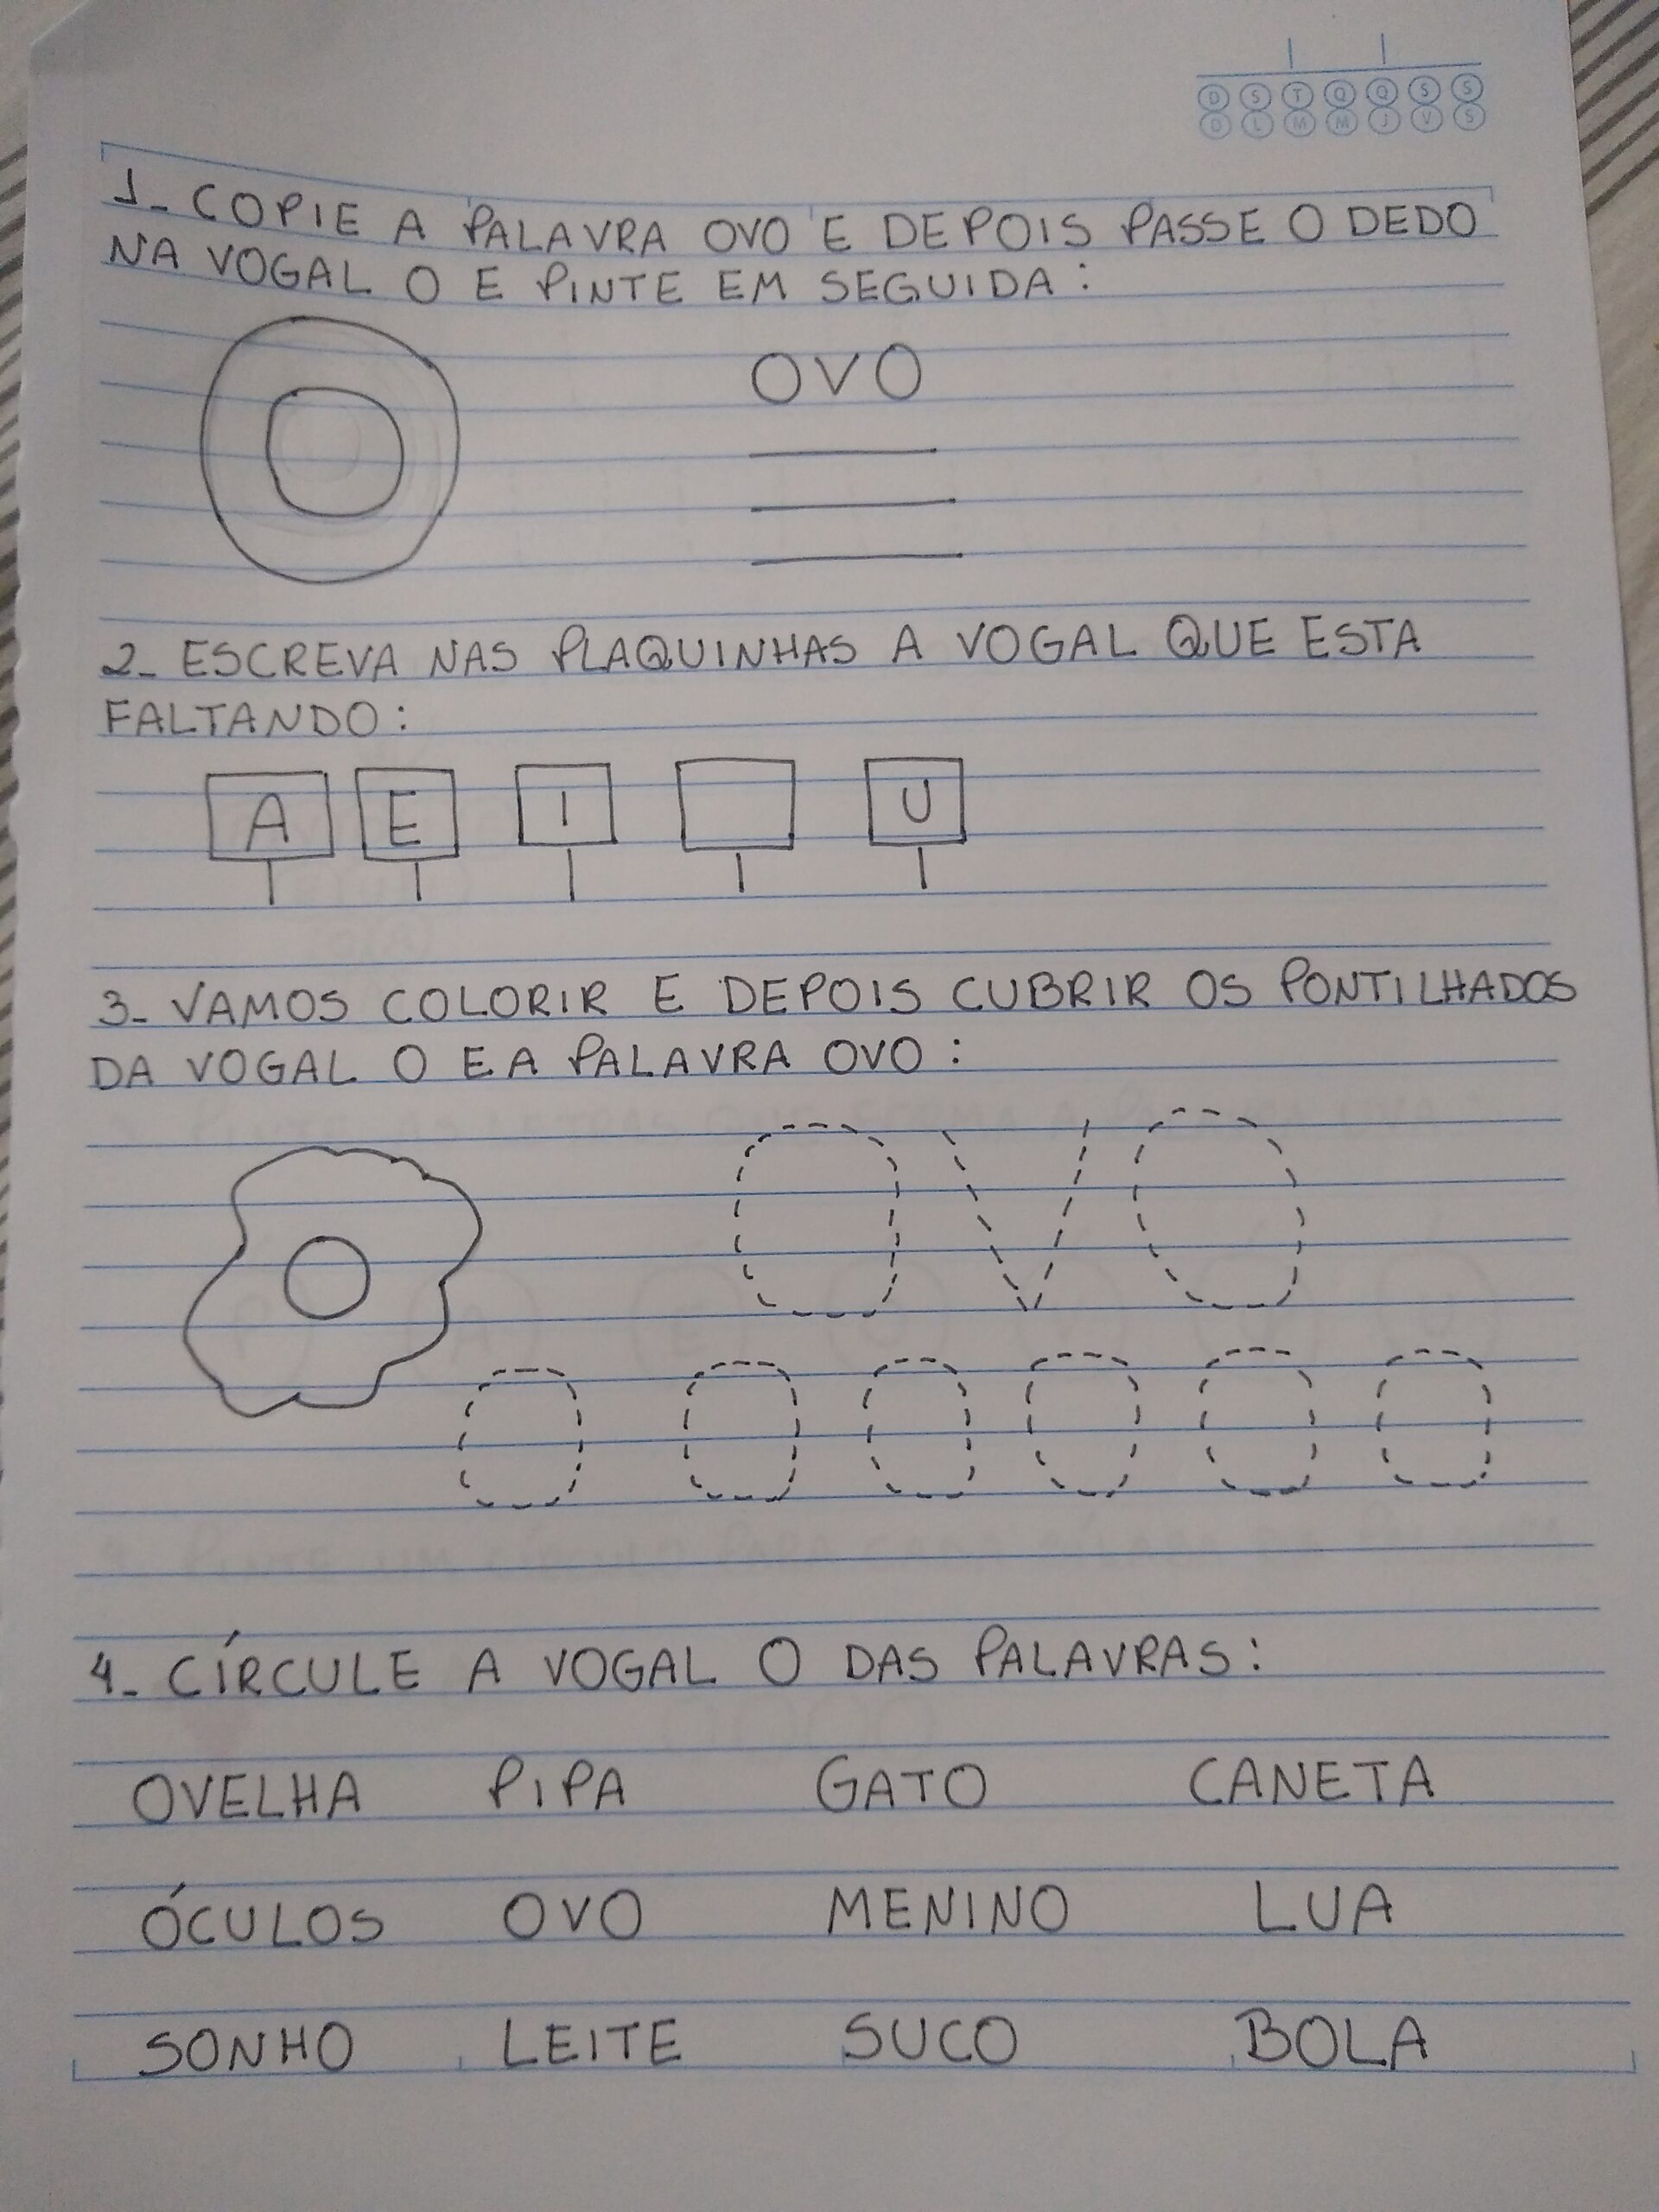 D S T Q Q S S
D L M M J V S
1- COPIE A PALAVRA OVO E DEPOIS PASSE O DEDO
NA VOGAL O E PINTE EM SEGUIDA:
O
OVO
2- ESCREVA NAS PLAQUINHAS A VOGAL QUE ESTA
FALTANDO:
A E I U
3- VAMOS COLORIR E DEPOIS CUBRIR OS PONTILHADOS
DA VOGAL O E A PALAVRA OVO:
OVO
O O O O O O
4- CÍRCULE A VOGAL O DAS PALAVRAS:
OVELHA PIPA GATO CANETA
ÓCULOS OVO MENINO LUA
SONHO LEITE SUCO BOLA